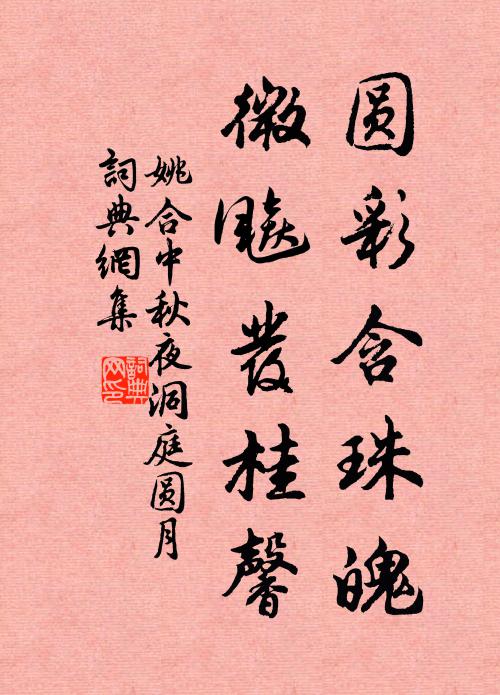 圆彩含珠魄
微飈發桂馨
姚合中秋夜洞庭圆月
詞典網集
詞典网印